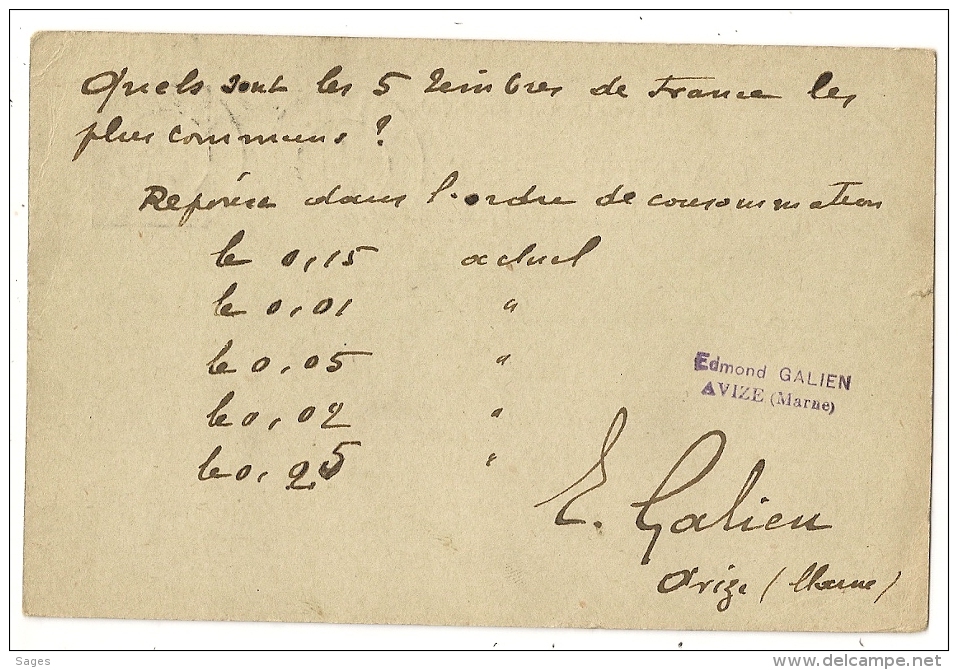 Quels sont les 5 Timbres de France les
plus communs ?
Réponse dans l'ordre de consommation
le 0,15 actuel
le 0,01 "
le 0,05 "
le 0,02 "
le 0,25 "
Edmond GALIEN
AVIZE (Marne)
E. Galien
Avize (Marne)
Sages
www.delcampe.net